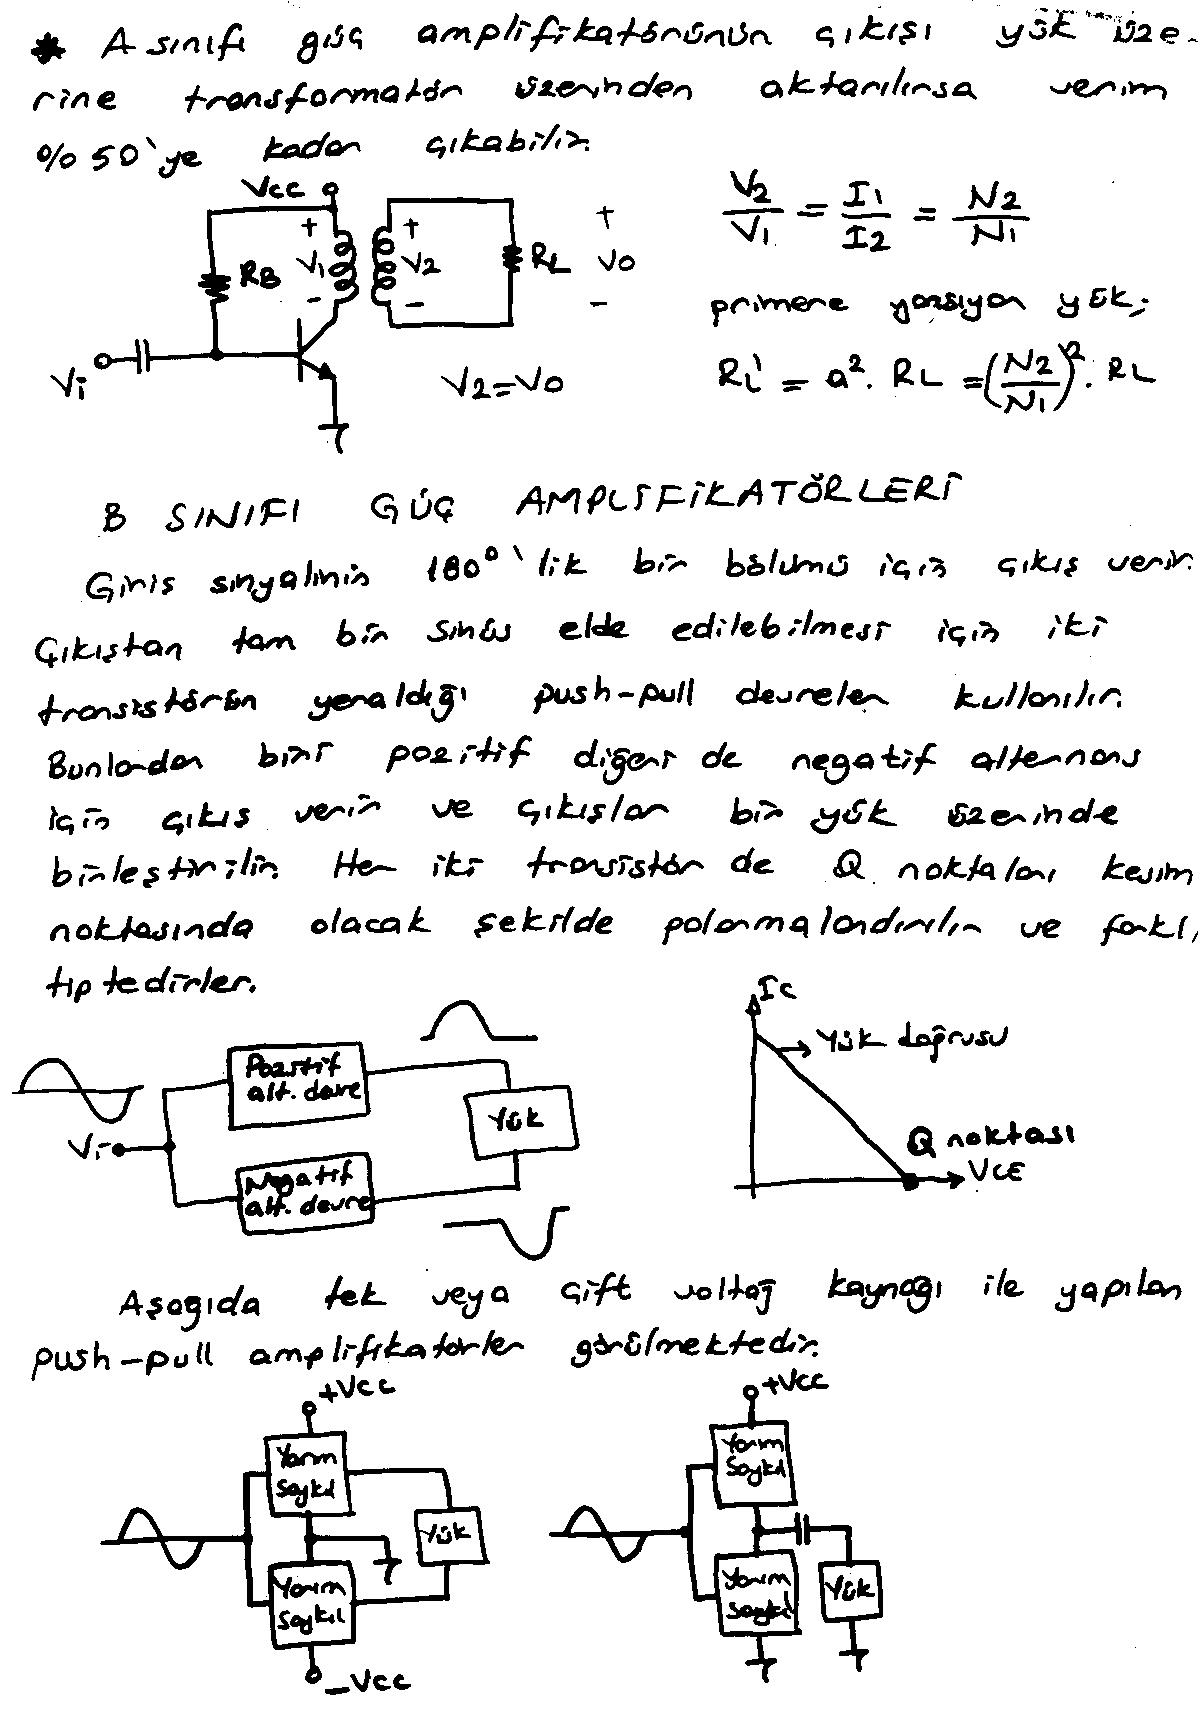 * A sınıfı güç amplifikatörünün çıkışı yük üze-
rine transformatör üzerinden aktarılırsa verim
%50'ye kadar çıkabilir.
Vcc
+ +
RB V1 V2 RL
- -
+
Vo
-
Vi
V2=Vo
V2/V1 = I1/I2 = N2/N1
primere yansıyan yük;
RL' = a². RL = (N2/N1)². RL
B SINIFI GÜÇ AMPLİFİKATÖRLERİ
Giriş sinyalinin 180°'lik bir bölümü için çıkış verir.
Çıkıştan tam bir sinüs elde edilebilmesi için iki
transistörün yeraldığı push-pull devreler kullanılır.
Bunlardan biri pozitif diğeri de negatif alternans
için çıkış verir ve çıkışlar bir yük üzerinde
birleştirilir. Her iki transistör de Q noktaları kesim
noktasında olacak şekilde polarmalandırılır ve farklı
tiptedirler.
Pozitif
alt. devre
Yük
Vi
Negatif
alt. devre
Ic
Yük doğrusu
Q noktası
VCE
Aşağıda tek veya çift voltaj kaynağı ile yapılan
push-pull amplifikatörler görülmektedir.
+Vcc
Yarım
Saykıl
Yük
Yarım
Saykıl
-Vcc
+Vcc
Yarım
Saykıl
Yarım
Saykıl
Yük